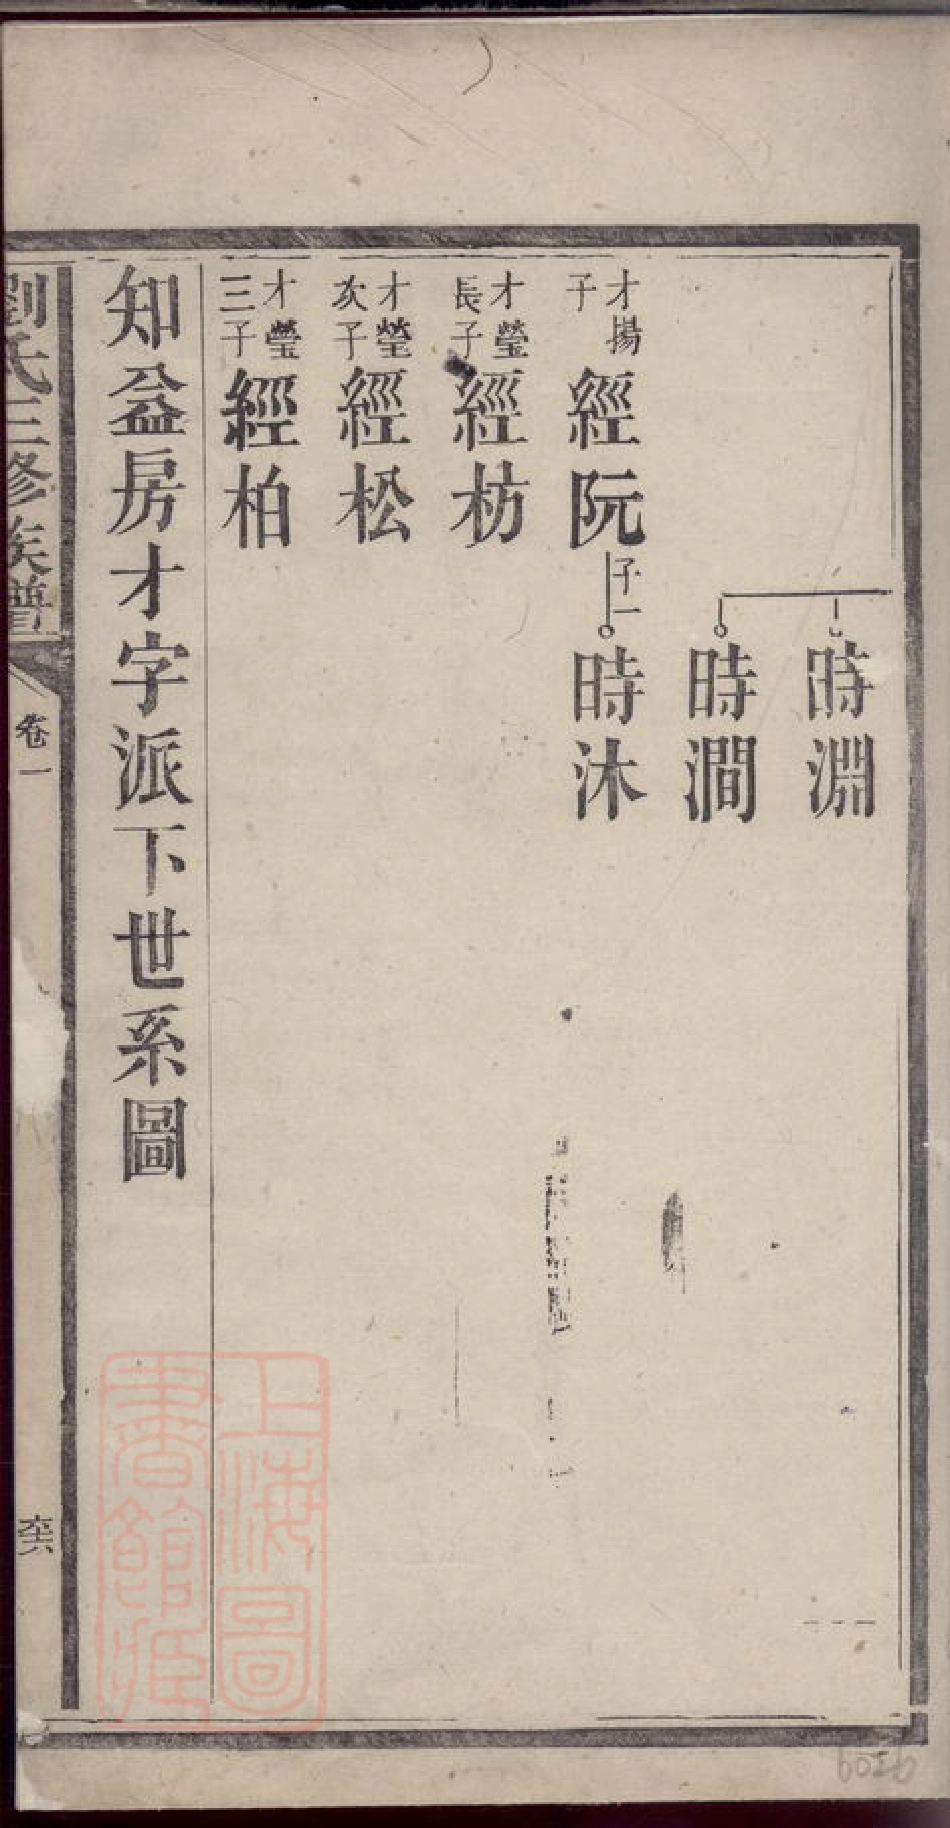 時淵
時澗
才揚子 經阮 子一 時沐
才瑩長子 經枋
才瑩次子 經松
才瑩三子 經柏
知益房才字派下世系圖
劉氏三修族譜 卷一 六六
上海圖書館藏
6026